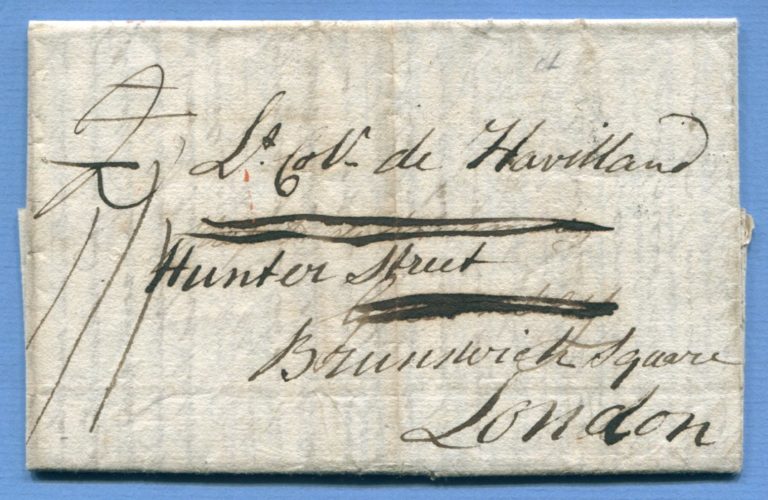 Lt. Col. de Havilland
Hunter Street
Brunswick Square
London